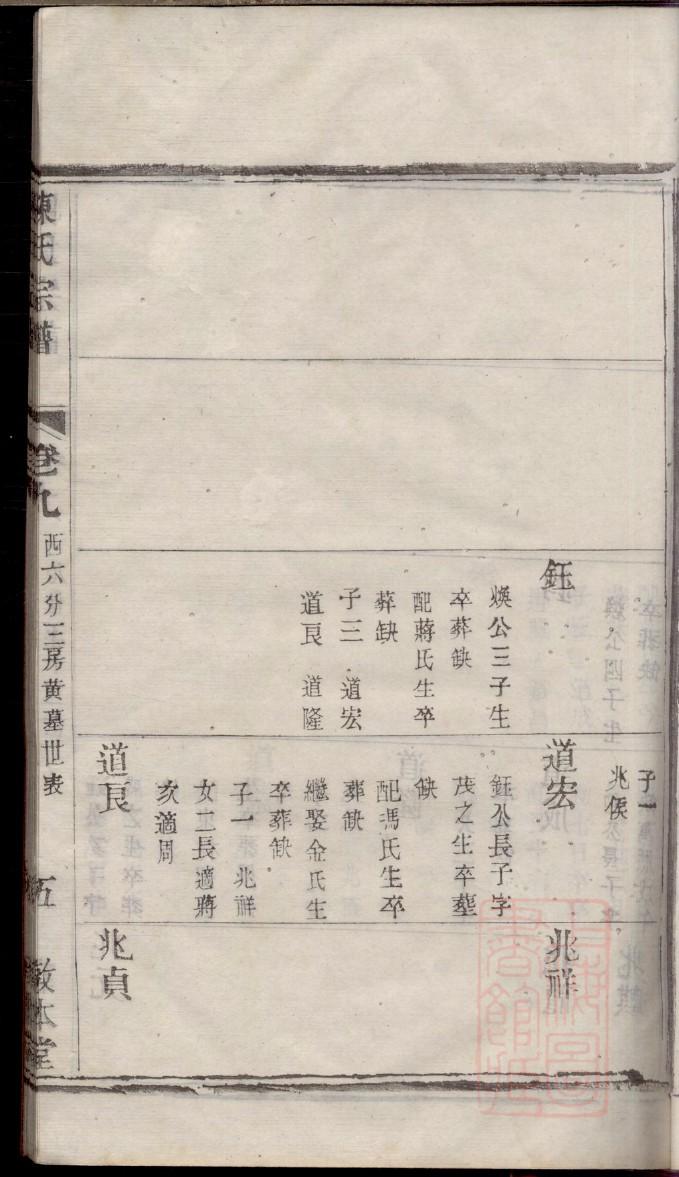 鈺
煥公三子生
卒葬缺
配蔣氏生卒
葬缺
子三 道宏
道良 道隆
子一
兆侯
道宏
鈺公長子字
茂之生卒葬
缺
配馮氏生卒
葬缺
繼娶金氏生
卒葬缺
子一 兆祥
女二長適蔣
次適周
道良
兆祥
兆貞
陳氏宗譜
卷九
西六分三房黃墓世表
五
敦本堂